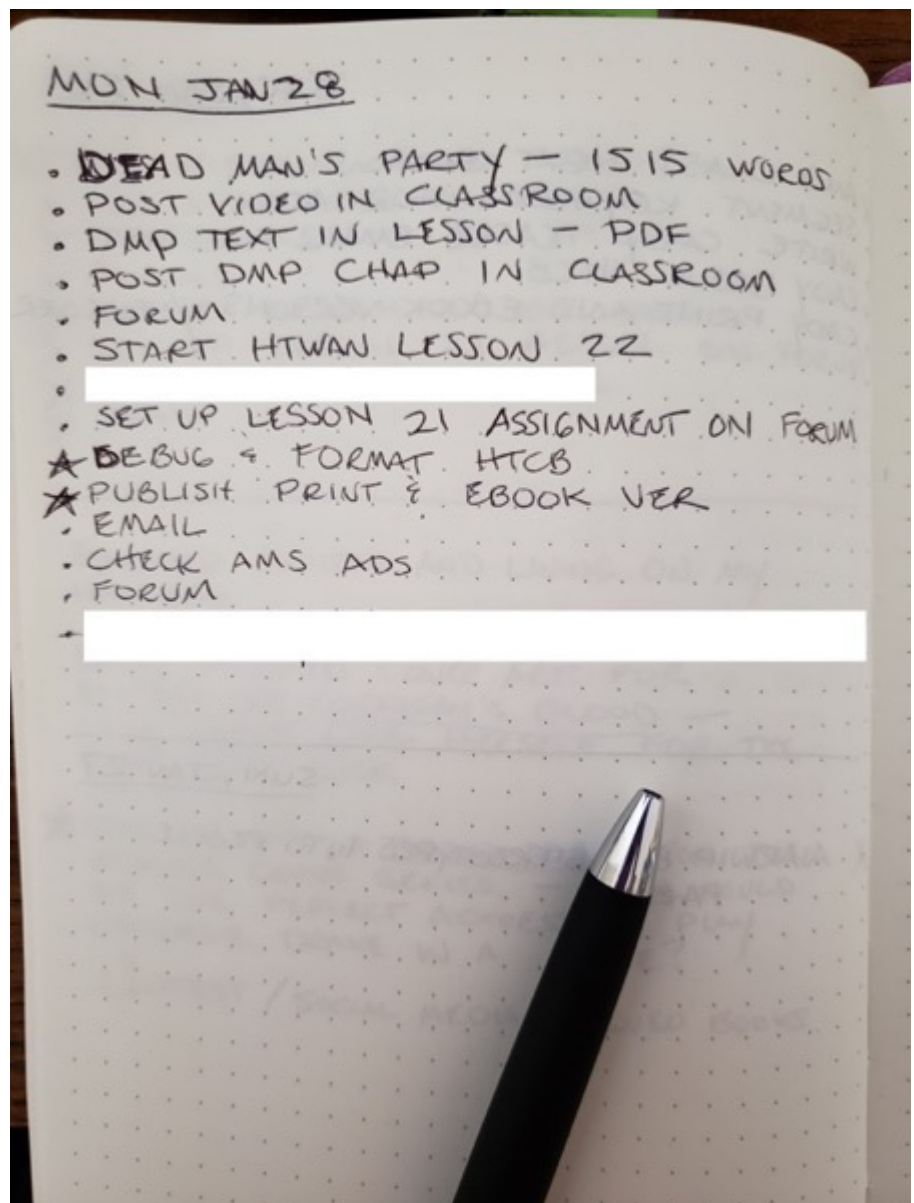 MON JAN 28
. DEAD MAN'S PARTY – 1515 WORDS
. POST VIDEO IN CLASSROOM
. DMP TEXT IN LESSON – PDF
. POST DMP CHAP IN CLASSROOM
. FORUM
. START HTWAN LESSON 22
.
. SET UP LESSON 21 ASSIGNMENT ON FORUM
★ DEBUG & FORMAT HTCB
★ PUBLISH PRINT & EBOOK VER
. EMAIL
. CHECK AMS ADS
. FORUM